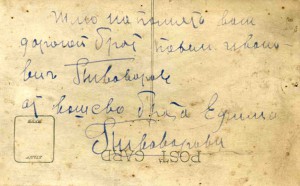 Шлю на память вам
дорогой брат Павел Ивано-
вич Пивоваров
от вашево брата Ефима
Пивоварова
POST CARD